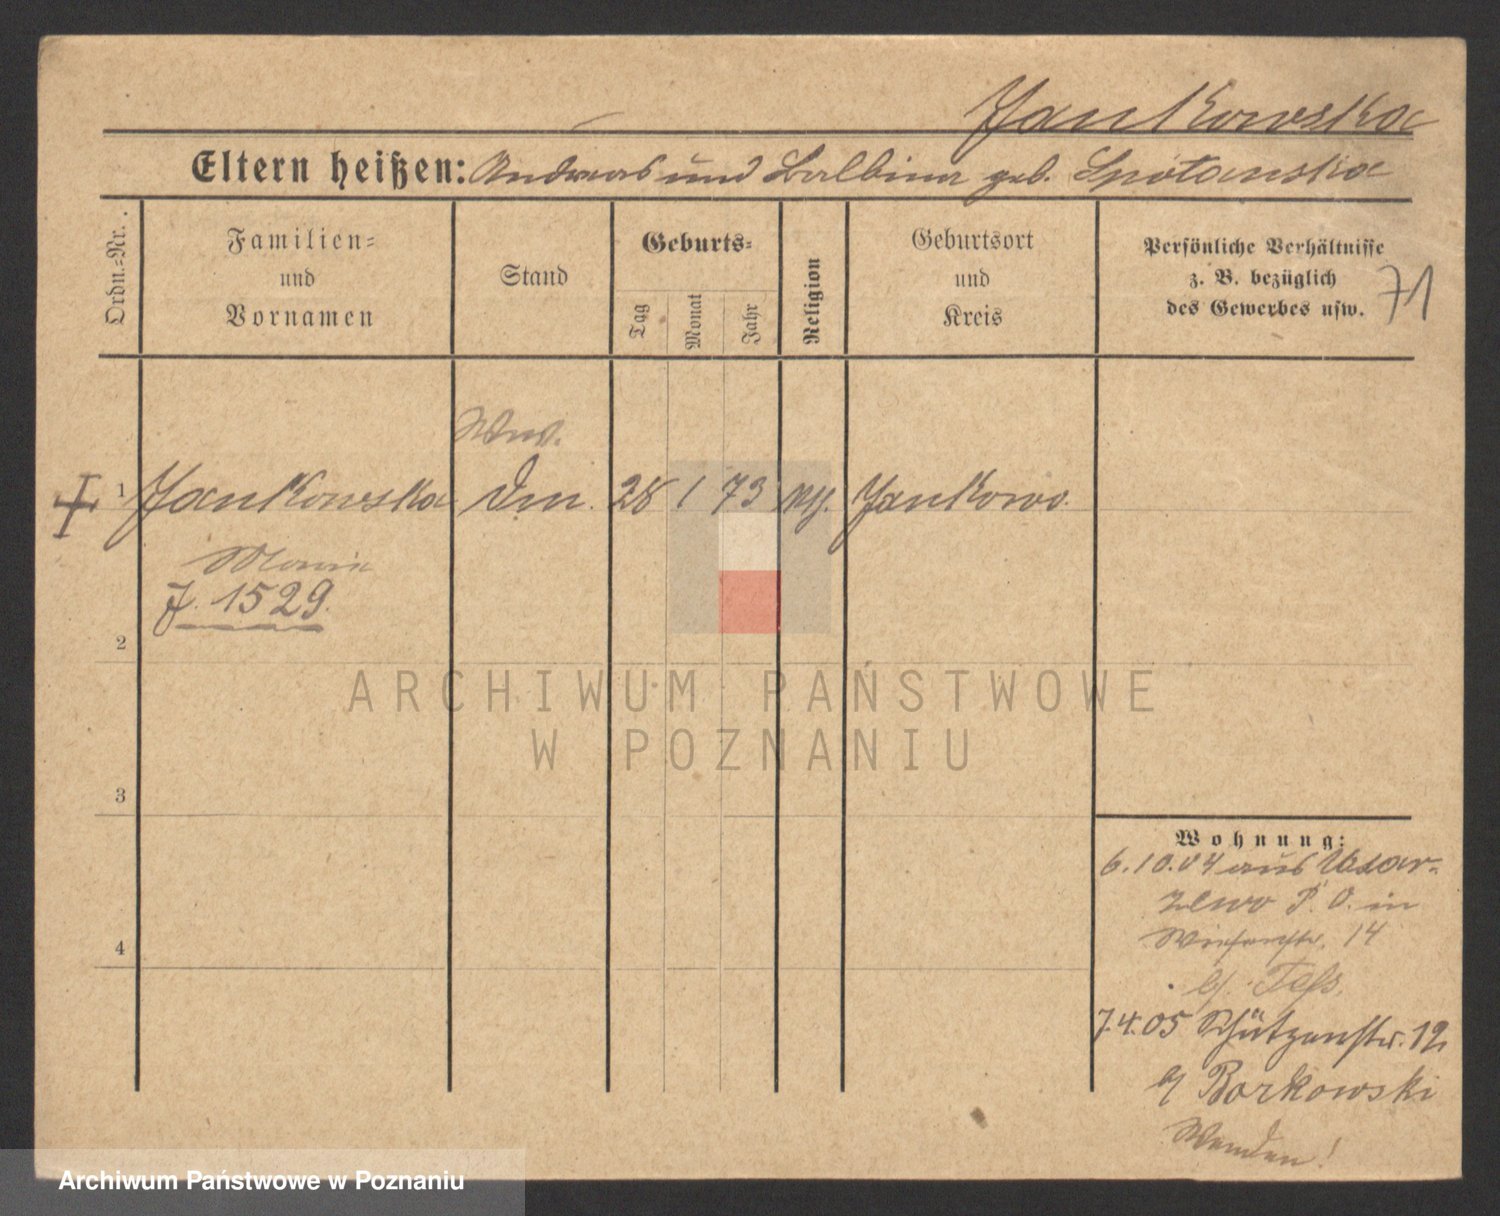 Jankowska
Eltern heißen: Andreas und Balbina geb. Spotanska
Ordn.-Nr.
Familien-
und
Vornamen
Stand
Geburts-
Tag
Monat
Jahr
Religion
Geburtsort
und
Kreis
Persönliche Verhältnisse
z. B. bezüglich
des Gewerbes usw.
71
Ww.
1 Jankowska Dm. 28 1 73 Jankowo.
Maria
J. 1529.
2
ARCHIWUM PAŃSTWOWE
W POZNANIU
3
Wohnung:
6.10.04 aus
P. O. in
Wiesenstr. 14
b/.
4
7.4.05 Schützenstr. 12
b/ Borkowski
Wenden!
Archiwum Państwowe w Poznaniu